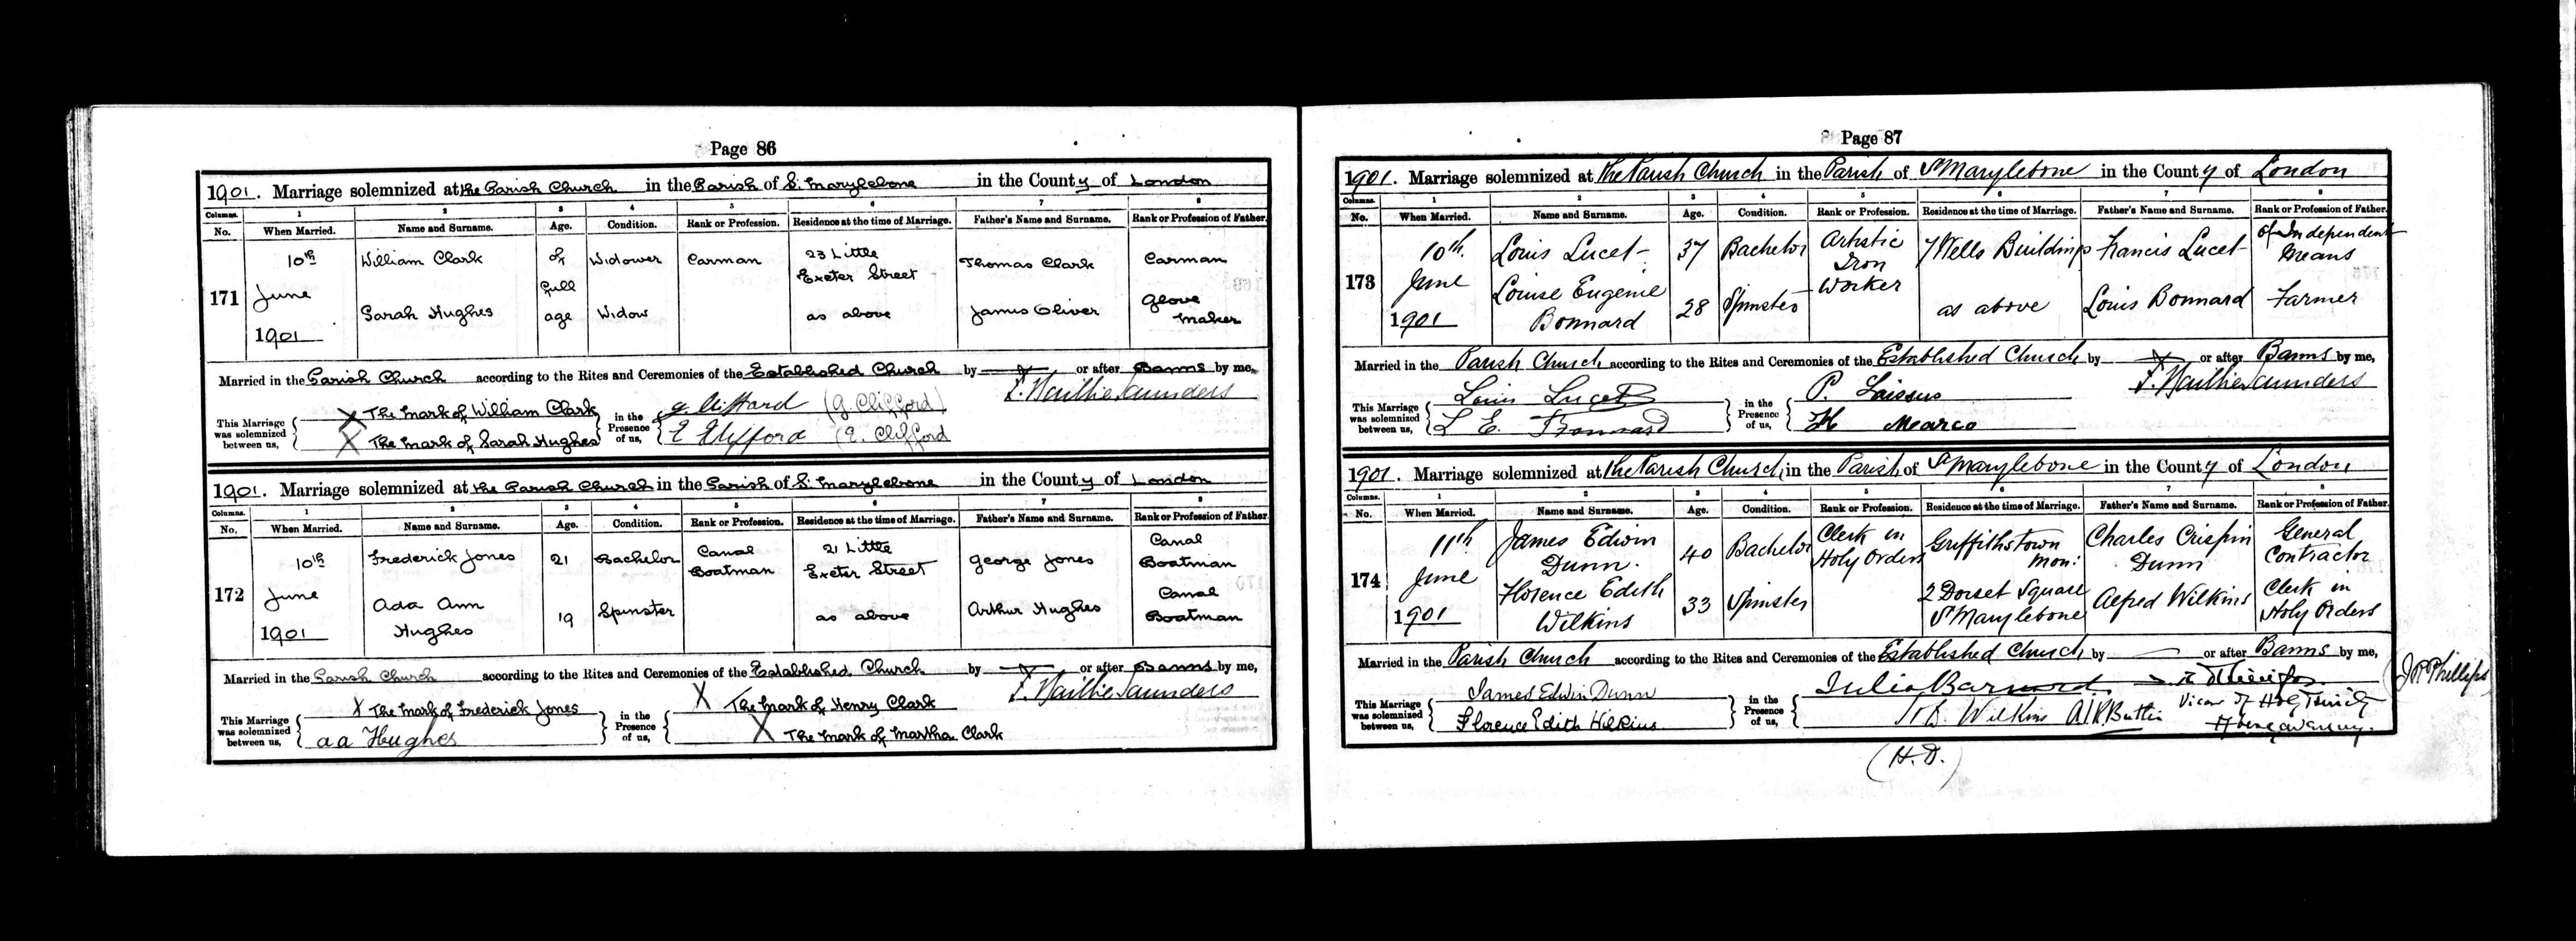 Page 86
1901. Marriage solemnized at the Parish Church in the Parish of St. Marylebone in the County of London
Columns. 1 2 3 4 5 6 7 8
No. When Married. Name and Surname. Age. Condition. Rank or Profession. Residence at the time of Marriage. Father's Name and Surname. Rank or Profession of Father.
171 10th June 1901 William Clark of full age Widower Carman 23 Little Exeter Street Thomas Clark Carman
Sarah Hughes Widow as above James Oliver Glove Maker
Married in the Parish Church according to the Rites and Ceremonies of the Established Church by or after Banns by me,
Saunders
This Marriage was solemnized between us, X The mark of William Clark in the Presence of us, G Clifford (G Clifford)
X The mark of Sarah Hughes E Clifford (E. Clifford
1901. Marriage solemnized at the Parish Church in the Parish of St. Marylebone in the County of London
Columns. 1 2 3 4 5 6 7 8
No. When Married. Name and Surname. Age. Condition. Rank or Profession. Residence at the time of Marriage. Father's Name and Surname. Rank or Profession of Father.
172 10th June 1901 Frederick Jones 21 Bachelor Canal Boatman 21 Little Exeter Street George Jones Canal Boatman
Ada Ann Hughes 19 Spinster as above Arthur Hughes Canal Boatman
Married in the Parish Church according to the Rites and Ceremonies of the Established Church by or after Banns by me,
Saunders
This Marriage was solemnized between us, X The mark of Frederick Jones in the Presence of us, X The mark of Henry Clark
a a Hughes X The mark of Martha Clark
Page 87
1901. Marriage solemnized at the Parish Church in the Parish of St Marylebone in the County of London
Columns. 1 2 3 4 5 6 7 8
No. When Married. Name and Surname. Age. Condition. Rank or Profession. Residence at the time of Marriage. Father's Name and Surname. Rank or Profession of Father.
173 10th June 1901 Louis Lucet 37 Bachelor Artistic Iron Worker 7 Wells Buildings Francis Lucet of Independent Means
Louise Eugenie Bonnard 28 Spinster as above Louis Bonnard Farmer
Married in the Parish Church according to the Rites and Ceremonies of the Established Church by or after Banns by me,
Saunders
This Marriage was solemnized between us, Louis Lucet in the Presence of us, P. Laissus
L E. Bonnard H Mearco
1901. Marriage solemnized at the Parish Church in the Parish of St Marylebone in the County of London
Columns. 1 2 3 4 5 6 7 8
No. When Married. Name and Surname. Age. Condition. Rank or Profession. Residence at the time of Marriage. Father's Name and Surname. Rank or Profession of Father.
174 11th June 1901 James Edwin Dunn. 40 Bachelor Clerk in Holy Orders Griffithstown Mon: Charles Crispin Dunn General Contractor
Florence Edith Wilkins 33 Spinster 2 Dorset Square St Marylebone Alfred Wilkins Clerk in Holy Orders
Married in the Parish Church according to the Rites and Ceremonies of the Established Church by or after Banns by me,
This Marriage was solemnized between us, James Edwin Dunn in the Presence of us, Julia Barnard
Florence Edith Wilkins Wilkins A.R. Butlin
Vicar of Holy Trinity
Abergavenny.
(J.P. Phillips)
(H.D.)